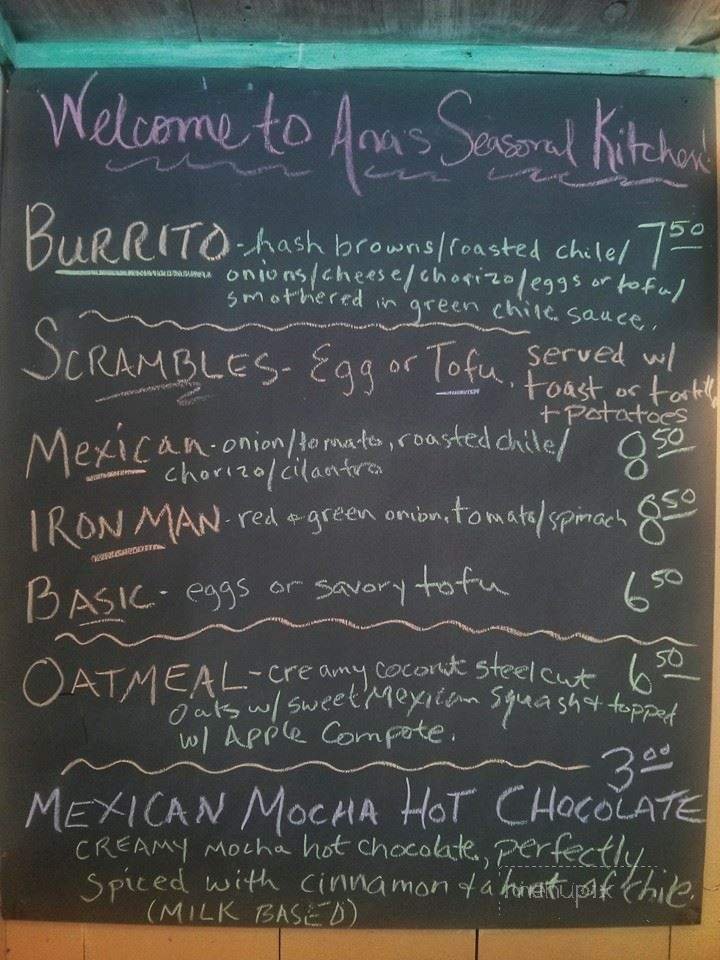 Welcome to Ana's Seasonal Kitchen!
BURRITO - hash browns/roasted chile/ 7 50
onions/cheese/chorizo/eggs or tofu/
smothered in green chile sauce.
SCRAMBLES - Egg or Tofu. served w/
toast or tortilla
+ potatoes
Mexican - onion/tomato, roasted chile/ 8 50
chorizo/cilantro
IRON MAN - red & green onion, tomato/spinach 8 50
BASIC - eggs or savory tofu 6 50
OATMEAL - creamy coconut steel cut 6 50
oats w/ sweet Mexican Squash + topped
w/ Apple Compote.
3 00
MEXICAN MOCHA HOT CHOCOLATE
CREAMY Mocha hot chocolate, perfectly
Spiced with cinnamon + a hint of chile.
(MILK BASED)
menupix